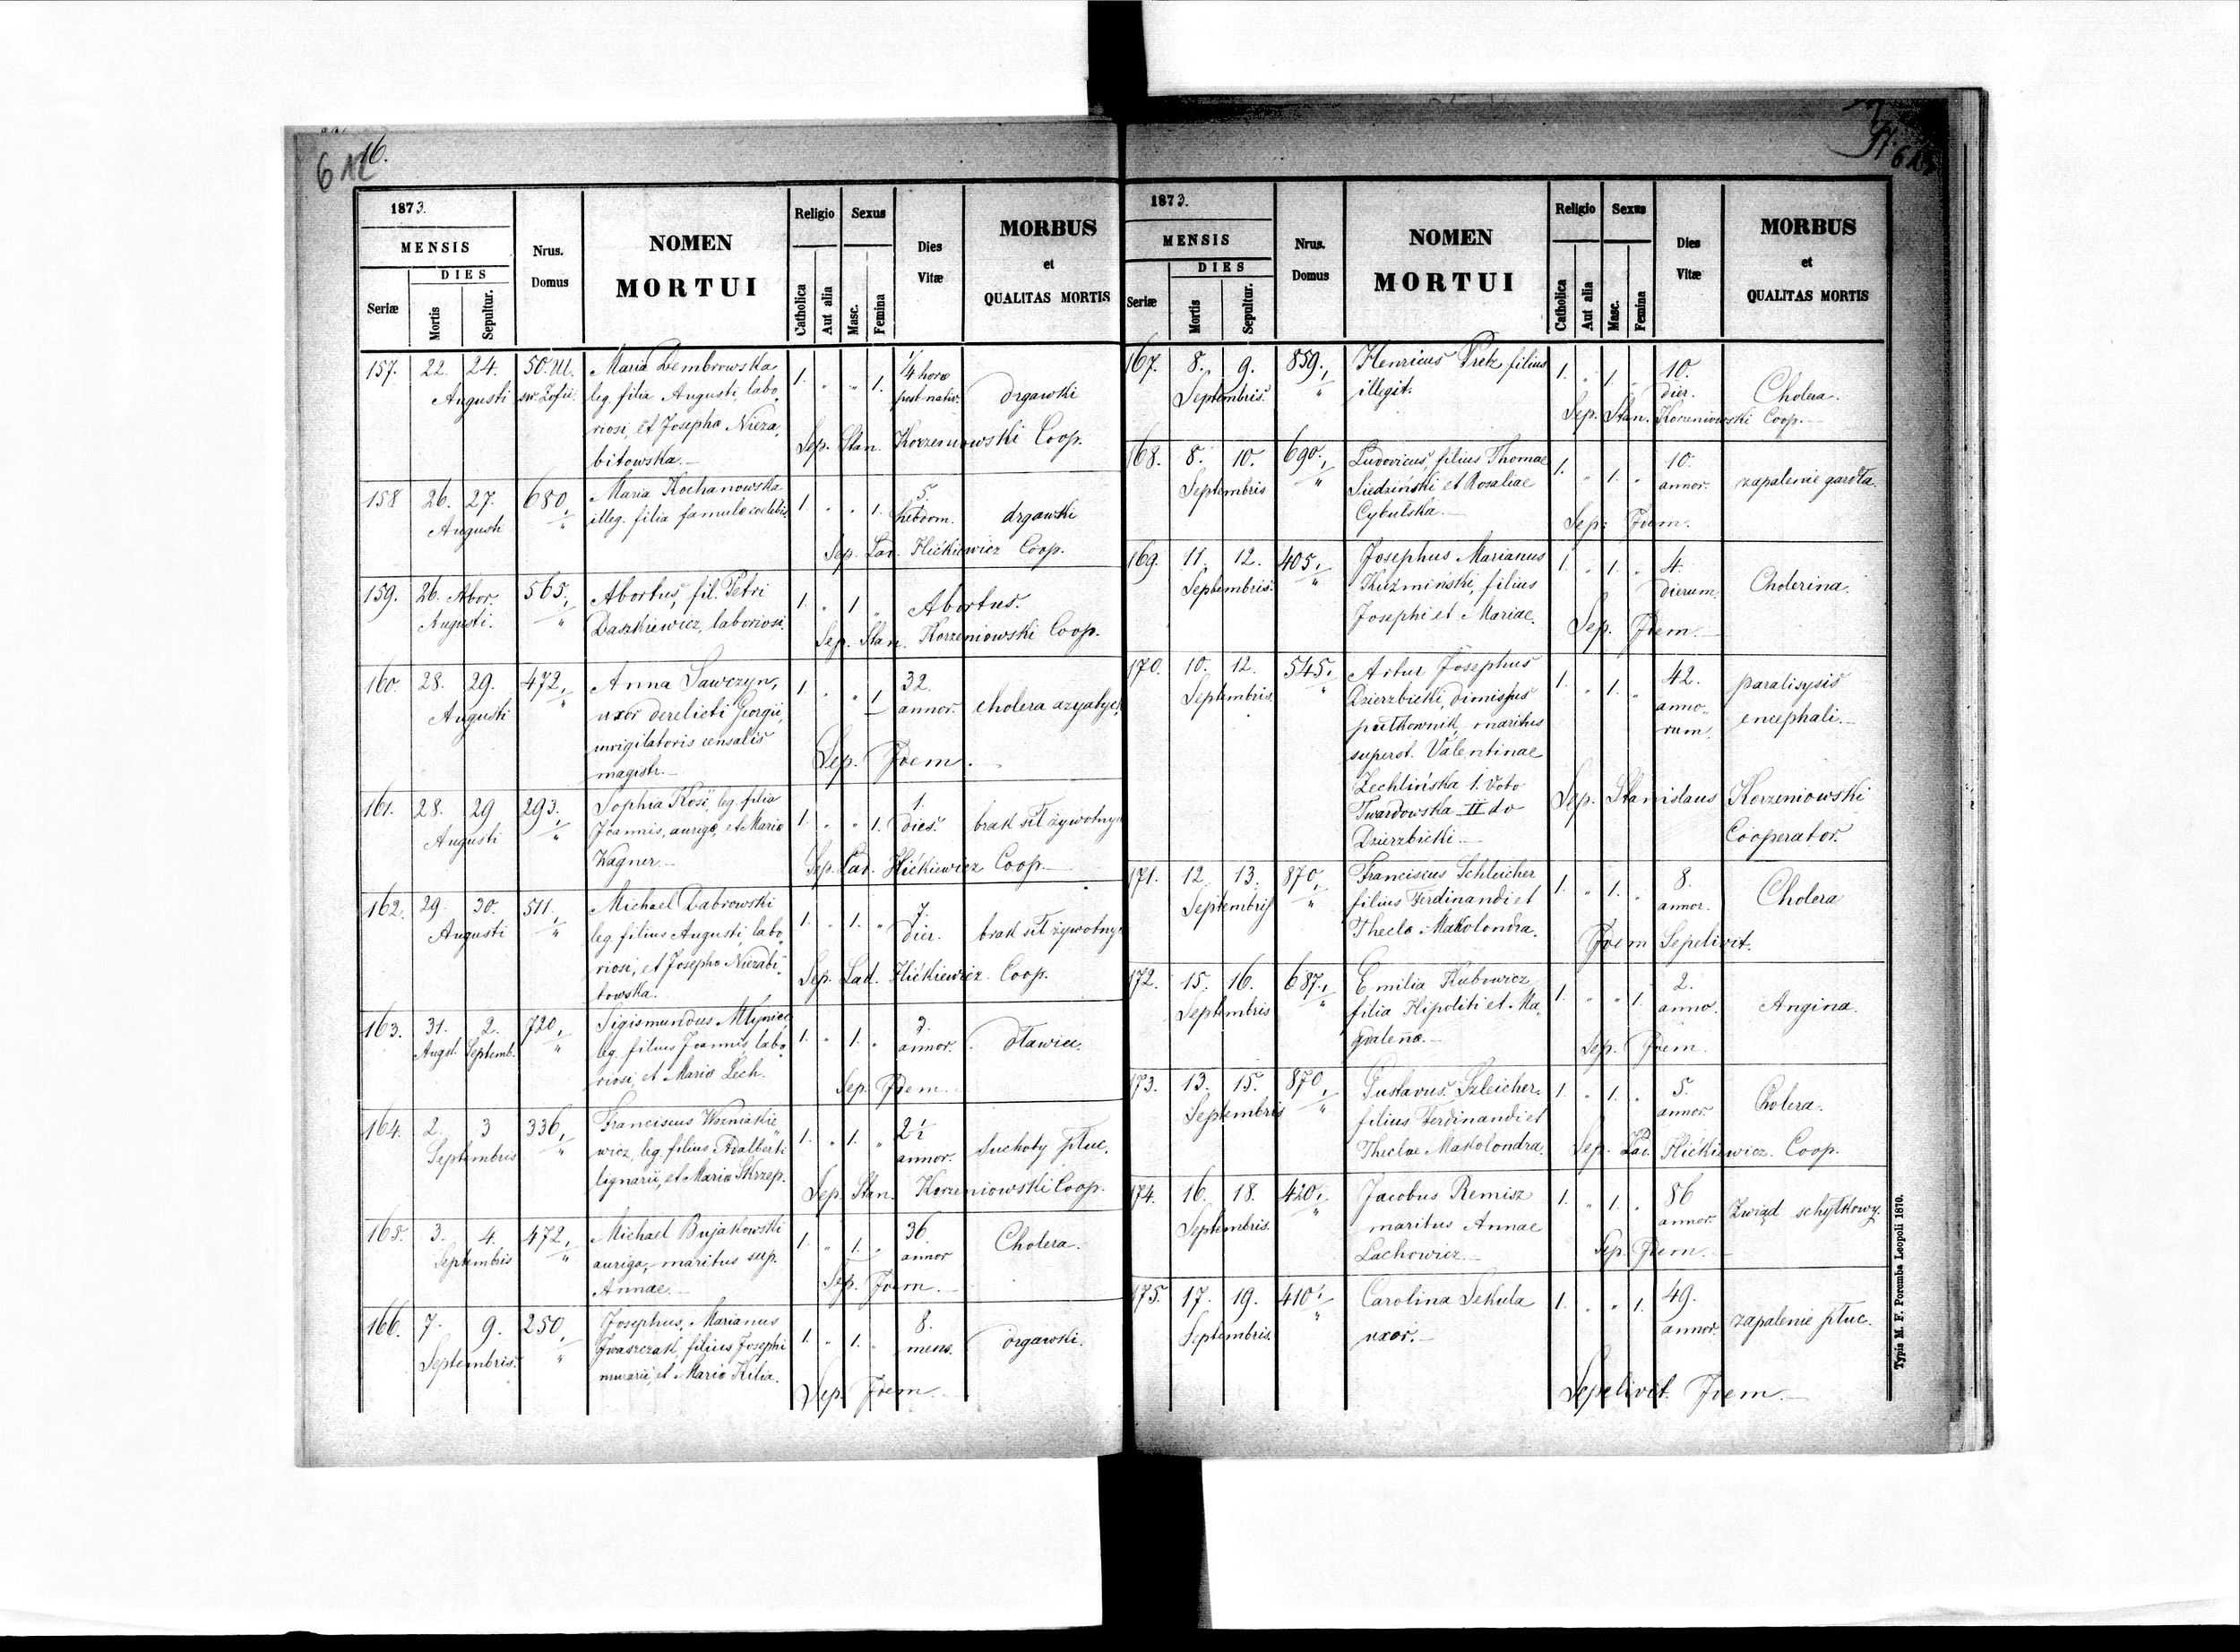 16.
612
1873.
MENSIS
DIES
Seriæ Mortis Sepultur.
Nrus. Domus
NOMEN MORTUI
Religio Sexus
Catholica Aut alia Masc. Femina
Dies Vitæ
MORBUS et QUALITAS MORTIS
157. 22. 24. 50. Ul. Maria Dembrowska 1. „ „ 1. 1/4 horæ
Augusti sw. Zofii. leg. filia Augusti, labo„ post nativ. drgawki
riosi, et Josepha Nieza„
bitowska.— Sep. Stan. Korzeniowski Coop.
158 26. 27. 680, Maria Kochanowska 1 „ „ 1. 5.
Augusti „ illeg. filia famulæ coelebis. hebdom. drgawki
Sep. Lad. Hićkiewicz Coop.
159. 26. Abor. 565, Abortus, fil. Petri 1. „ 1 „ Abortus.
Augusti. „ Daszkiewicz, laboriosi.
Sep. Stan. Korzeniowski Coop.
160. 28. 29. 472, Anna Sawczyn, 1. „ „ 1 32.
Augusti „ uxor derelicti Georgii, annor. cholera azyatyck.
invigilatoris censalis
magistr.— Sep. Idem.—
161. 28. 29 293. Sophia Kosi, leg. filia 1. „ „ 1. 1.
Augusti „ Joannis, aurigæ, et Mariæ dies. brak sił żywotny
Wagner.— Sep. Lad. Hićkiewicz Coop.—
162. 29. 30. 511, Michael Dabrowski 1. „ 1. „ 7.
Augusti „ leg. filius Augusti, labo„ dier. brak sił żywotny
riosi, et Josepha Niezabi„
towska. Sep. Lad. Hićkiewicz Coop.
163. 31. 2. 720, Sigismundus Młyniec 1. „ 1. „ 7.
Augst. Septemb. „ leg. filius Joannis, labo„ annor. dławiec.
riosi, et Mariæ Lech.
Sep. Idem.
164. 2. 3 336, Franciscus Wozniakie„ 1. „ 1. „ 2½
Septembris „ wicz, leg. filius Adalberti annor. Suchoty płuc.
lignarii, et Mariæ Skrzep.
Sep. Stan. Korzeniowski Coop.
165. 3. 4. 472, Michael Bujakowski 1. „ 1. „ 36.
Septembris „ auriga, maritus sup. annor Cholera.
Annae.— Sep. Idem.—
166. 7. 9. 250, Josephus, Marianus 1. „ 1. „ 8.
Septembris. „ Iwaszczak, filius Josephi mens. drgawki.
murarii, et Mariæ Kilia.
Sep. Idem.
1873.
MENSIS
DIES
Seriæ Mortis Sepultur.
Nrus. Domus
NOMEN MORTUI
Religio Sexus
Catholica Aut alia Masc. Femina
Dies Vitæ
MORBUS et QUALITAS MORTIS
167. 8. 9. 859, Henricus Pretz filius 1. „ 1. „ 10.
Septembris. „ illegit. dier. Cholera.
Sep. Stan. Korzeniowski Coop.—
168. 8. 10. 690, Ludovicus, filius Thomae 1. „ 1. „ 10.
Septembris „ Siedziński et Rosaliae annor. zapalenie gardła.
Cybulska.—
Sep: Idem.
169. 11. 12. 405, Josephus Marianus 1. „ 1. „ 4.
Septembris. „ Kuźmiński, filius dierum. Cholerina.
Josephi et Mariae.
Sep. Idem.—
170. 10. 12. 545. Artur Josephus 1. „ 1. „ 42. paralisysis
Septembris „ Dzierzbicki, dimissus anno„ encephali.—
pułkownik, maritus rum.
superst. Valentinae
Zechlińska 1. Voto
Twardowska II do
Dzierzbicki.—
Sep. Stanislaus Korzeniowski
Cooperator.
171. 12. 13. 870, Franciscus Schleicher 1. „ 1. „ 8.
Septembris „ filius Ferdinandi et annor. Cholera
Theclæ Makolondra.
Idem Sepelivit.
172. 15. 16. 687, Emilia Kubowicz 1. „ „ 1. 2.
Septembris „ filia Hipoliti et Ma„ anno. Angina.
gdalenæ.—
Sep. Idem.
173. 13. 15. 870, Gustavus Szleicher 1. „ 1. „ 5.
Septembris „ filius Ferdinandi et annor. Cholera.
Theclae Makolondra.
Sep. Lad. Hićkiewicz. Coop.
174. 16. 18. 420, Jacobus Remisz 1. „ 1. „ 86
Septembris. „ maritus Annae annor. Zwiąd schyłkowy.
Lachowicz.—
Sep. Idem.—
175. 17. 19. 410, Carolina Sekula 1. „ „ 1. 49.
Septembris. „ uxor.— annor. zapalenie płuc.
Sepelivit. Idem.—
Typis M. F. Poremba Leopoli 1870.